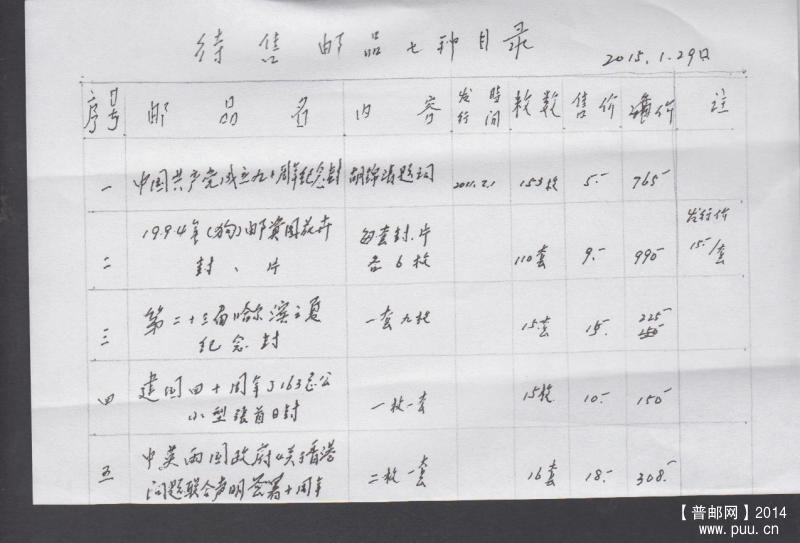 待售邮品七种目录
2015.1.29日
序号 邮品名 内容 发行時间 枚数 售价 总价 注
一 中国共产党成立九十周年纪念封 胡锦涛题词 2011.7.1 153枚 5- 765-
二 1994年(狗)邮资图花卉 每套封.片
封、片 各6枚 110套 9- 990- 发行价
15-/套
三 第二十三届哈尔滨之夏 一套九枚 15套 15- 225-
纪念封
四 建国四十周年J163 公
小型张首日封 一枚一套 15枚 10- 150-
五 中英两国政府关于香港
问题联合声明签署十周年 二枚一套 16套 18- 308-
【普邮网】2014
www.puu.cn